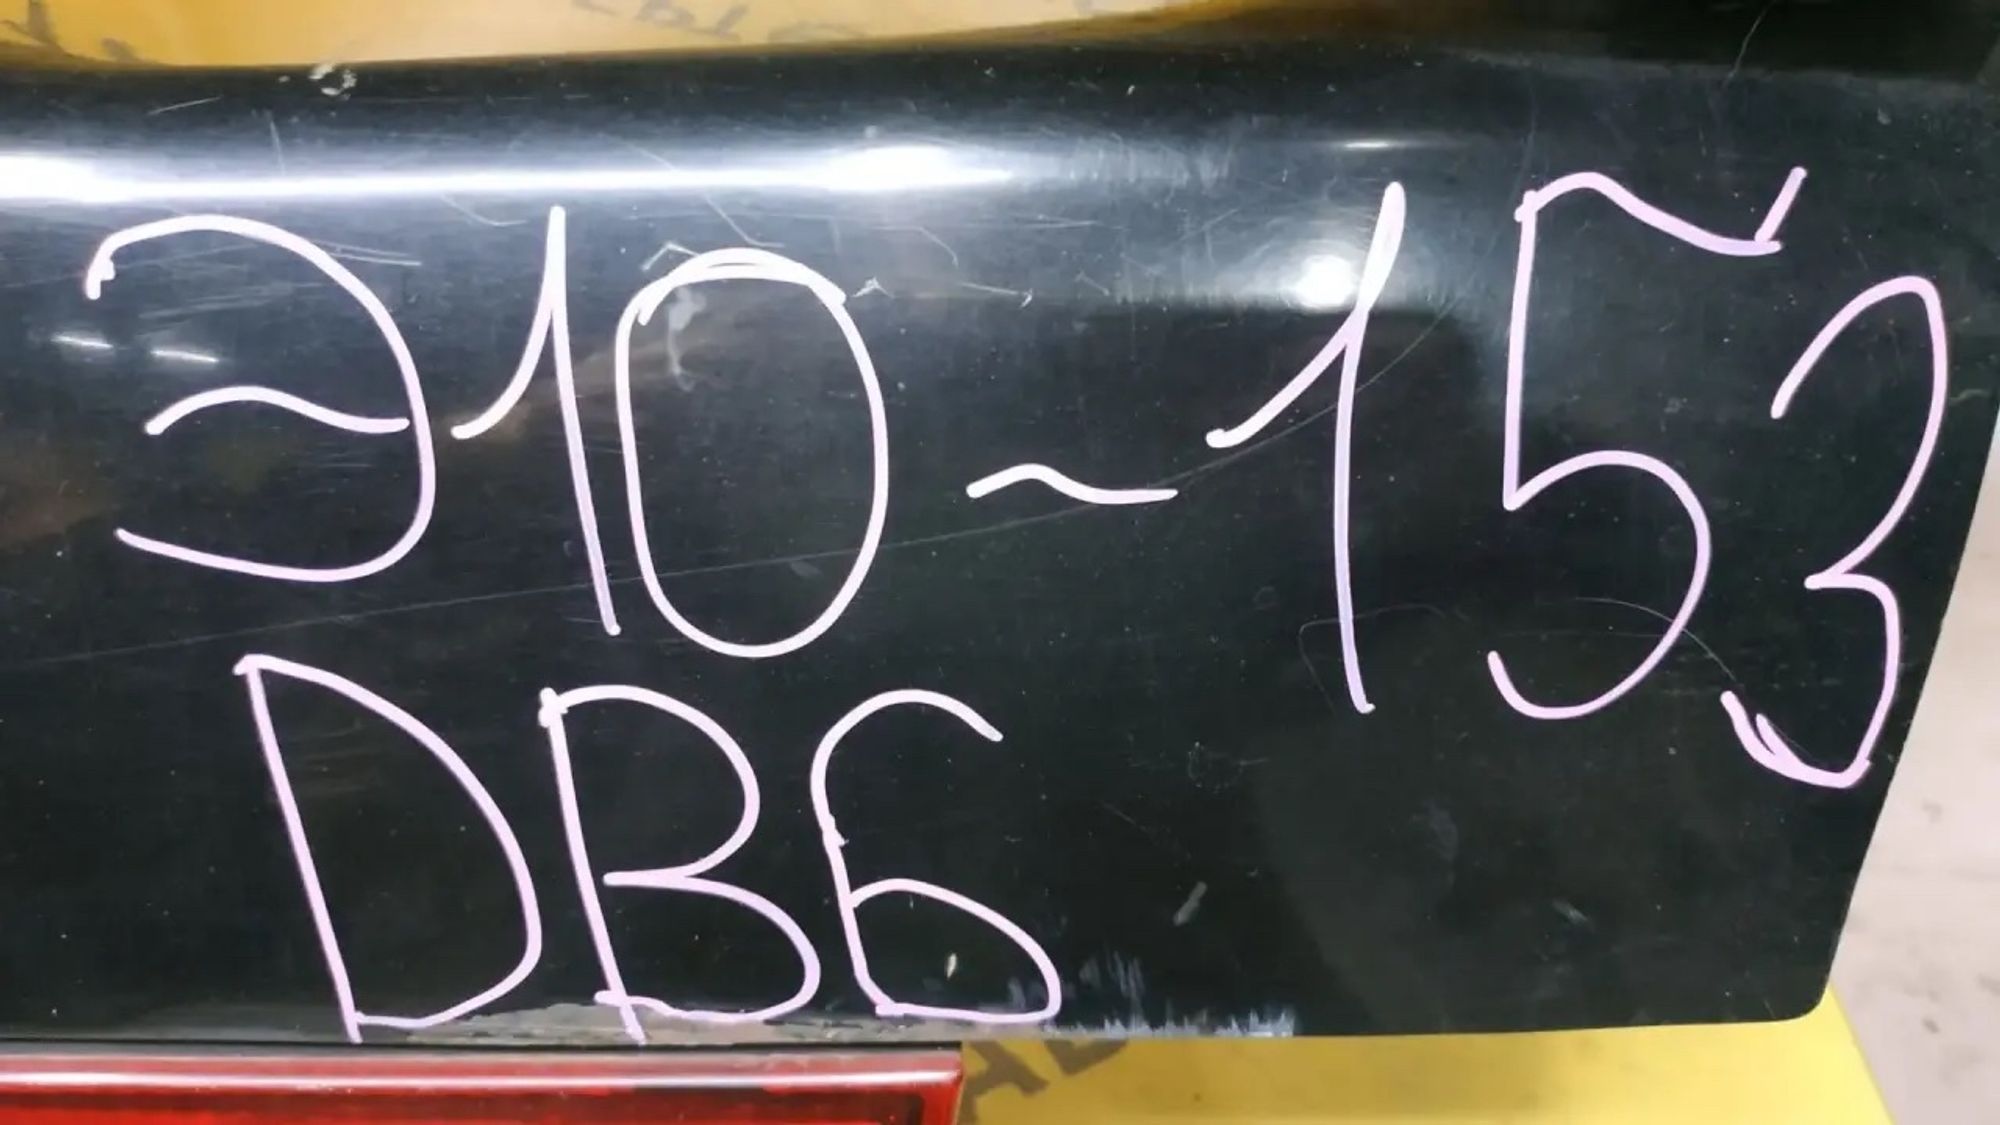 Э10-153
DB6